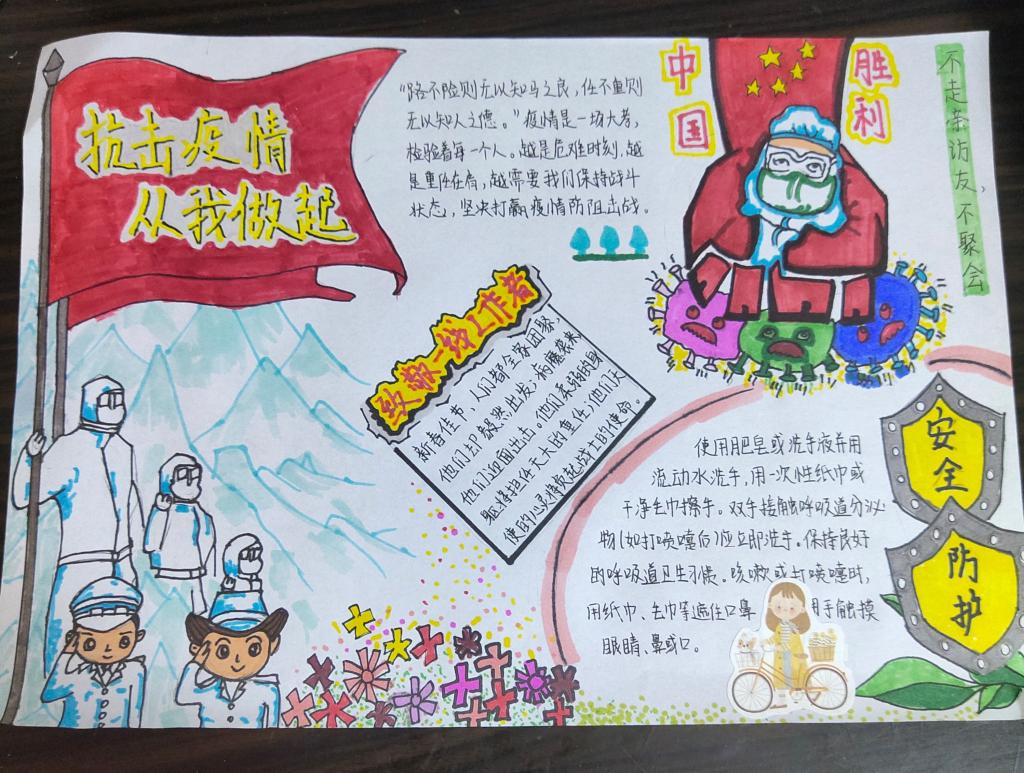 抗击疫情
从我做起
"路不险则无以知马之良,任不重则
无以知人之德。"疫情是一场大考,
检验着每一个人。越是危难时刻,越
是重任在肩,越需要我们保持战斗
状态,坚决打赢疫情防阻击战。
中国
胜利
不走亲访友,不聚会
致敬一线工作者
新春佳节,人们都全家团聚,
他们却毅然出发;病魔袭来
他们迎面出击。他们柔弱的身
躯将担任天大的重任;他们天
使的心灵将筑起战士的使命。
安全
防护
使用肥皂或洗手液并用
流动水洗手,用一次性纸巾或
干净毛巾擦手。双手接触呼吸道分泌
物(如打喷嚏后)应立即洗手。保持良好
的呼吸道卫生习惯。咳嗽或打喷嚏时,
用纸巾、毛巾等遮住口鼻 用手触摸
眼睛、鼻或口。